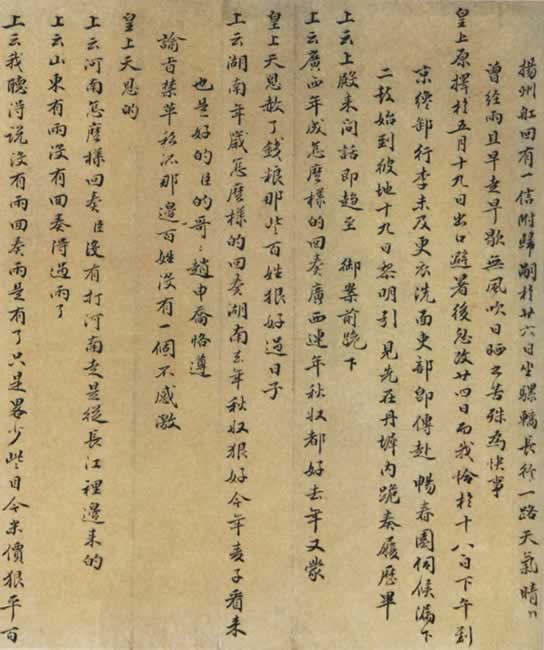 揚州舡回有一信附歸嗣於廿六日坐騾轎長行一路天氣晴〻
曾經雨且早走早歇無風吹日晒之苦殊為快事
皇上原擇於五月十九日出口避暑後忽改廿四日而我恰於十八日下午到
京纔卸行李未及更衣洗面吏部即傳赴 暢春園伺候漏下
二鼓始到彼地十九日黎明引 見先在丹墀內跪奏履歷畢
上云上殿來問話即趨至 御案前跪下
上云廣西年成怎麼樣的回奏廣西連年秋收都好去年又蒙
皇上天恩赦了錢糧那些百姓狠好過日子
上云湖南年歲怎麼樣的回奏湖南去年秋收狠好今年麥子看來
也是好的臣的哥〻趙申喬恪遵
諭旨禁革私派那邊百姓沒有一個不感激
皇上天恩的
上云河南怎麼樣回奏臣沒有打河南走是從長江裡邊來的
上云山東有雨沒有回奏得過雨了
上云我聽得說沒有雨回奏雨是有了只是畧少些目今米價狠平百